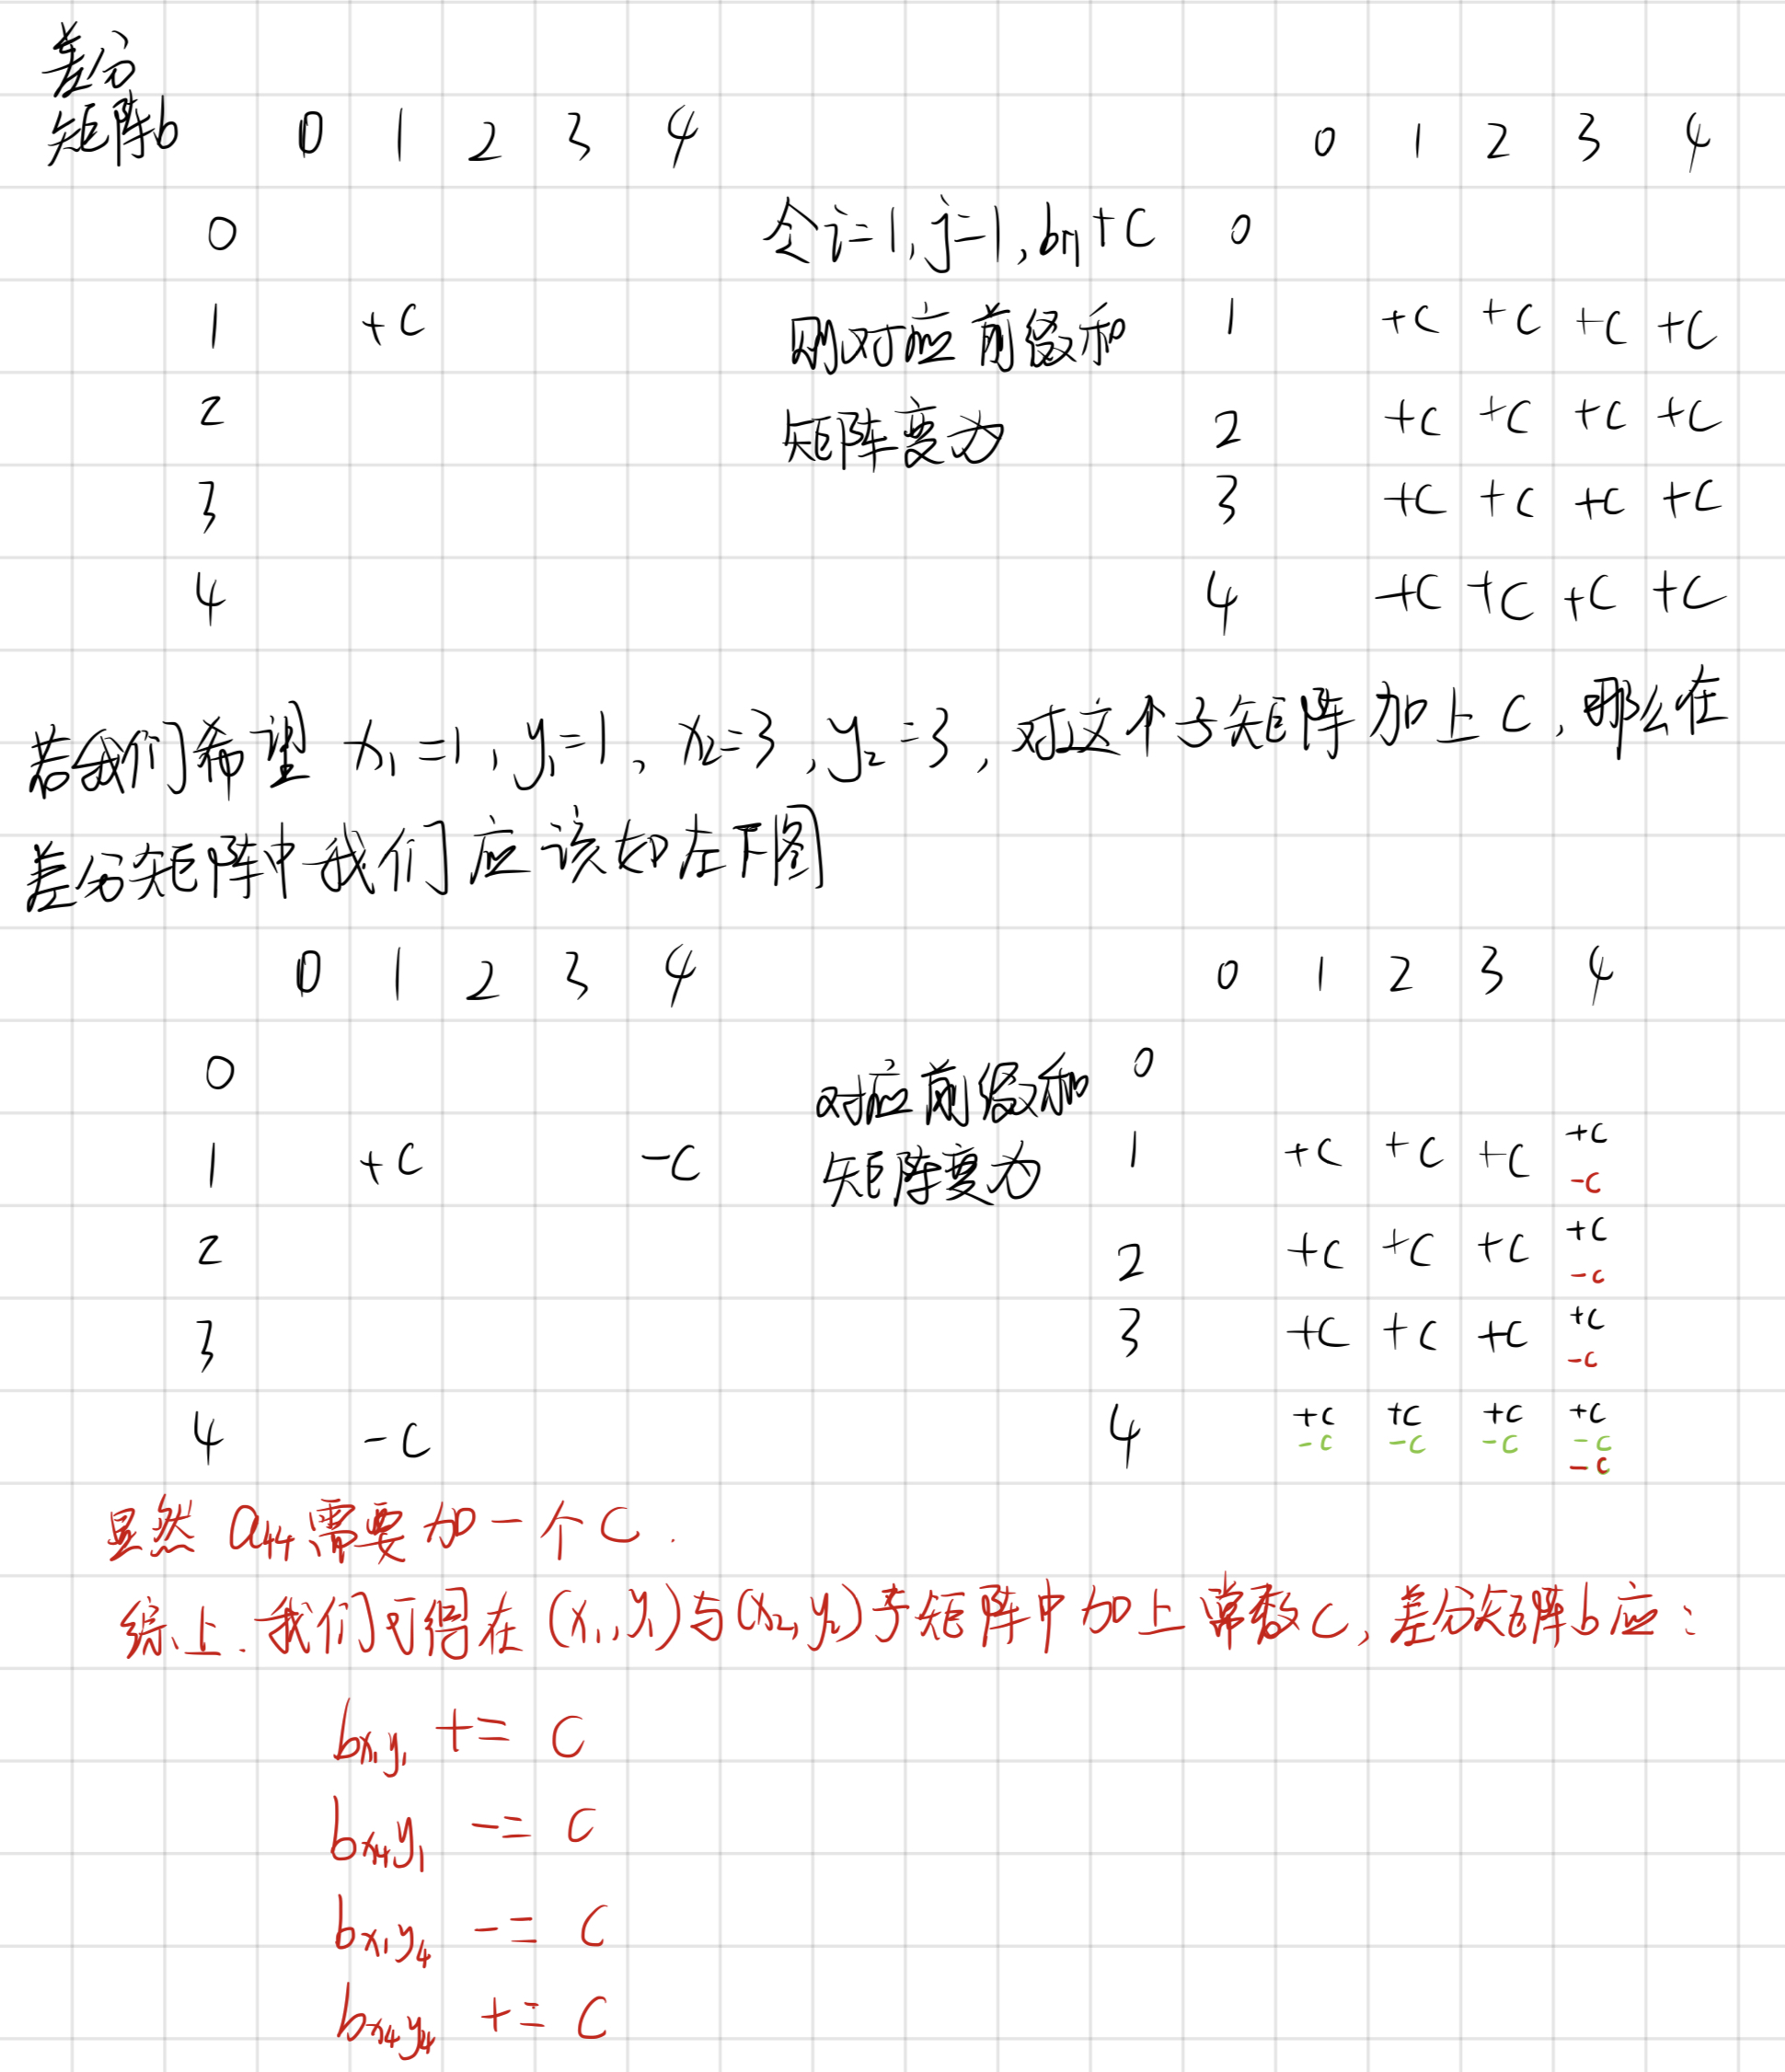 差分
矩阵b 0 1 2 3 4 0 1 2 3 4
0 令i=1,j=1,b11+C 0
1 +C 则对应前缀和 1 +C +C +C +C
2 矩阵变为 2 +C +C +C +C
3 3 +C +C +C +C
4 4 +C +C +C +C
若我们希望 x₁=1,y₁=1、x₂=3,y₂=3,对这个子矩阵加上C,那么在
差分矩阵中我们应该如左下图
0 1 2 3 4 0 1 2 3 4
0 对应前缀和 0
1 +C -C 矩阵变为 1 +C +C +C +C -C
2 2 +C +C +C +C -C
3 3 +C +C +C +C -C
4 -C 4 +C -C +C -C +C -C +C -C -C
显然 a44需要加一个C.
综上.我们可得在(x₁,y₁)与(x₂,y₂)子矩阵中加上常数C,差分矩阵b应:
bx₁y₁ += C
bx₄y₁ -= C
bx₁y₄ -= C
bx₄y₄ += C